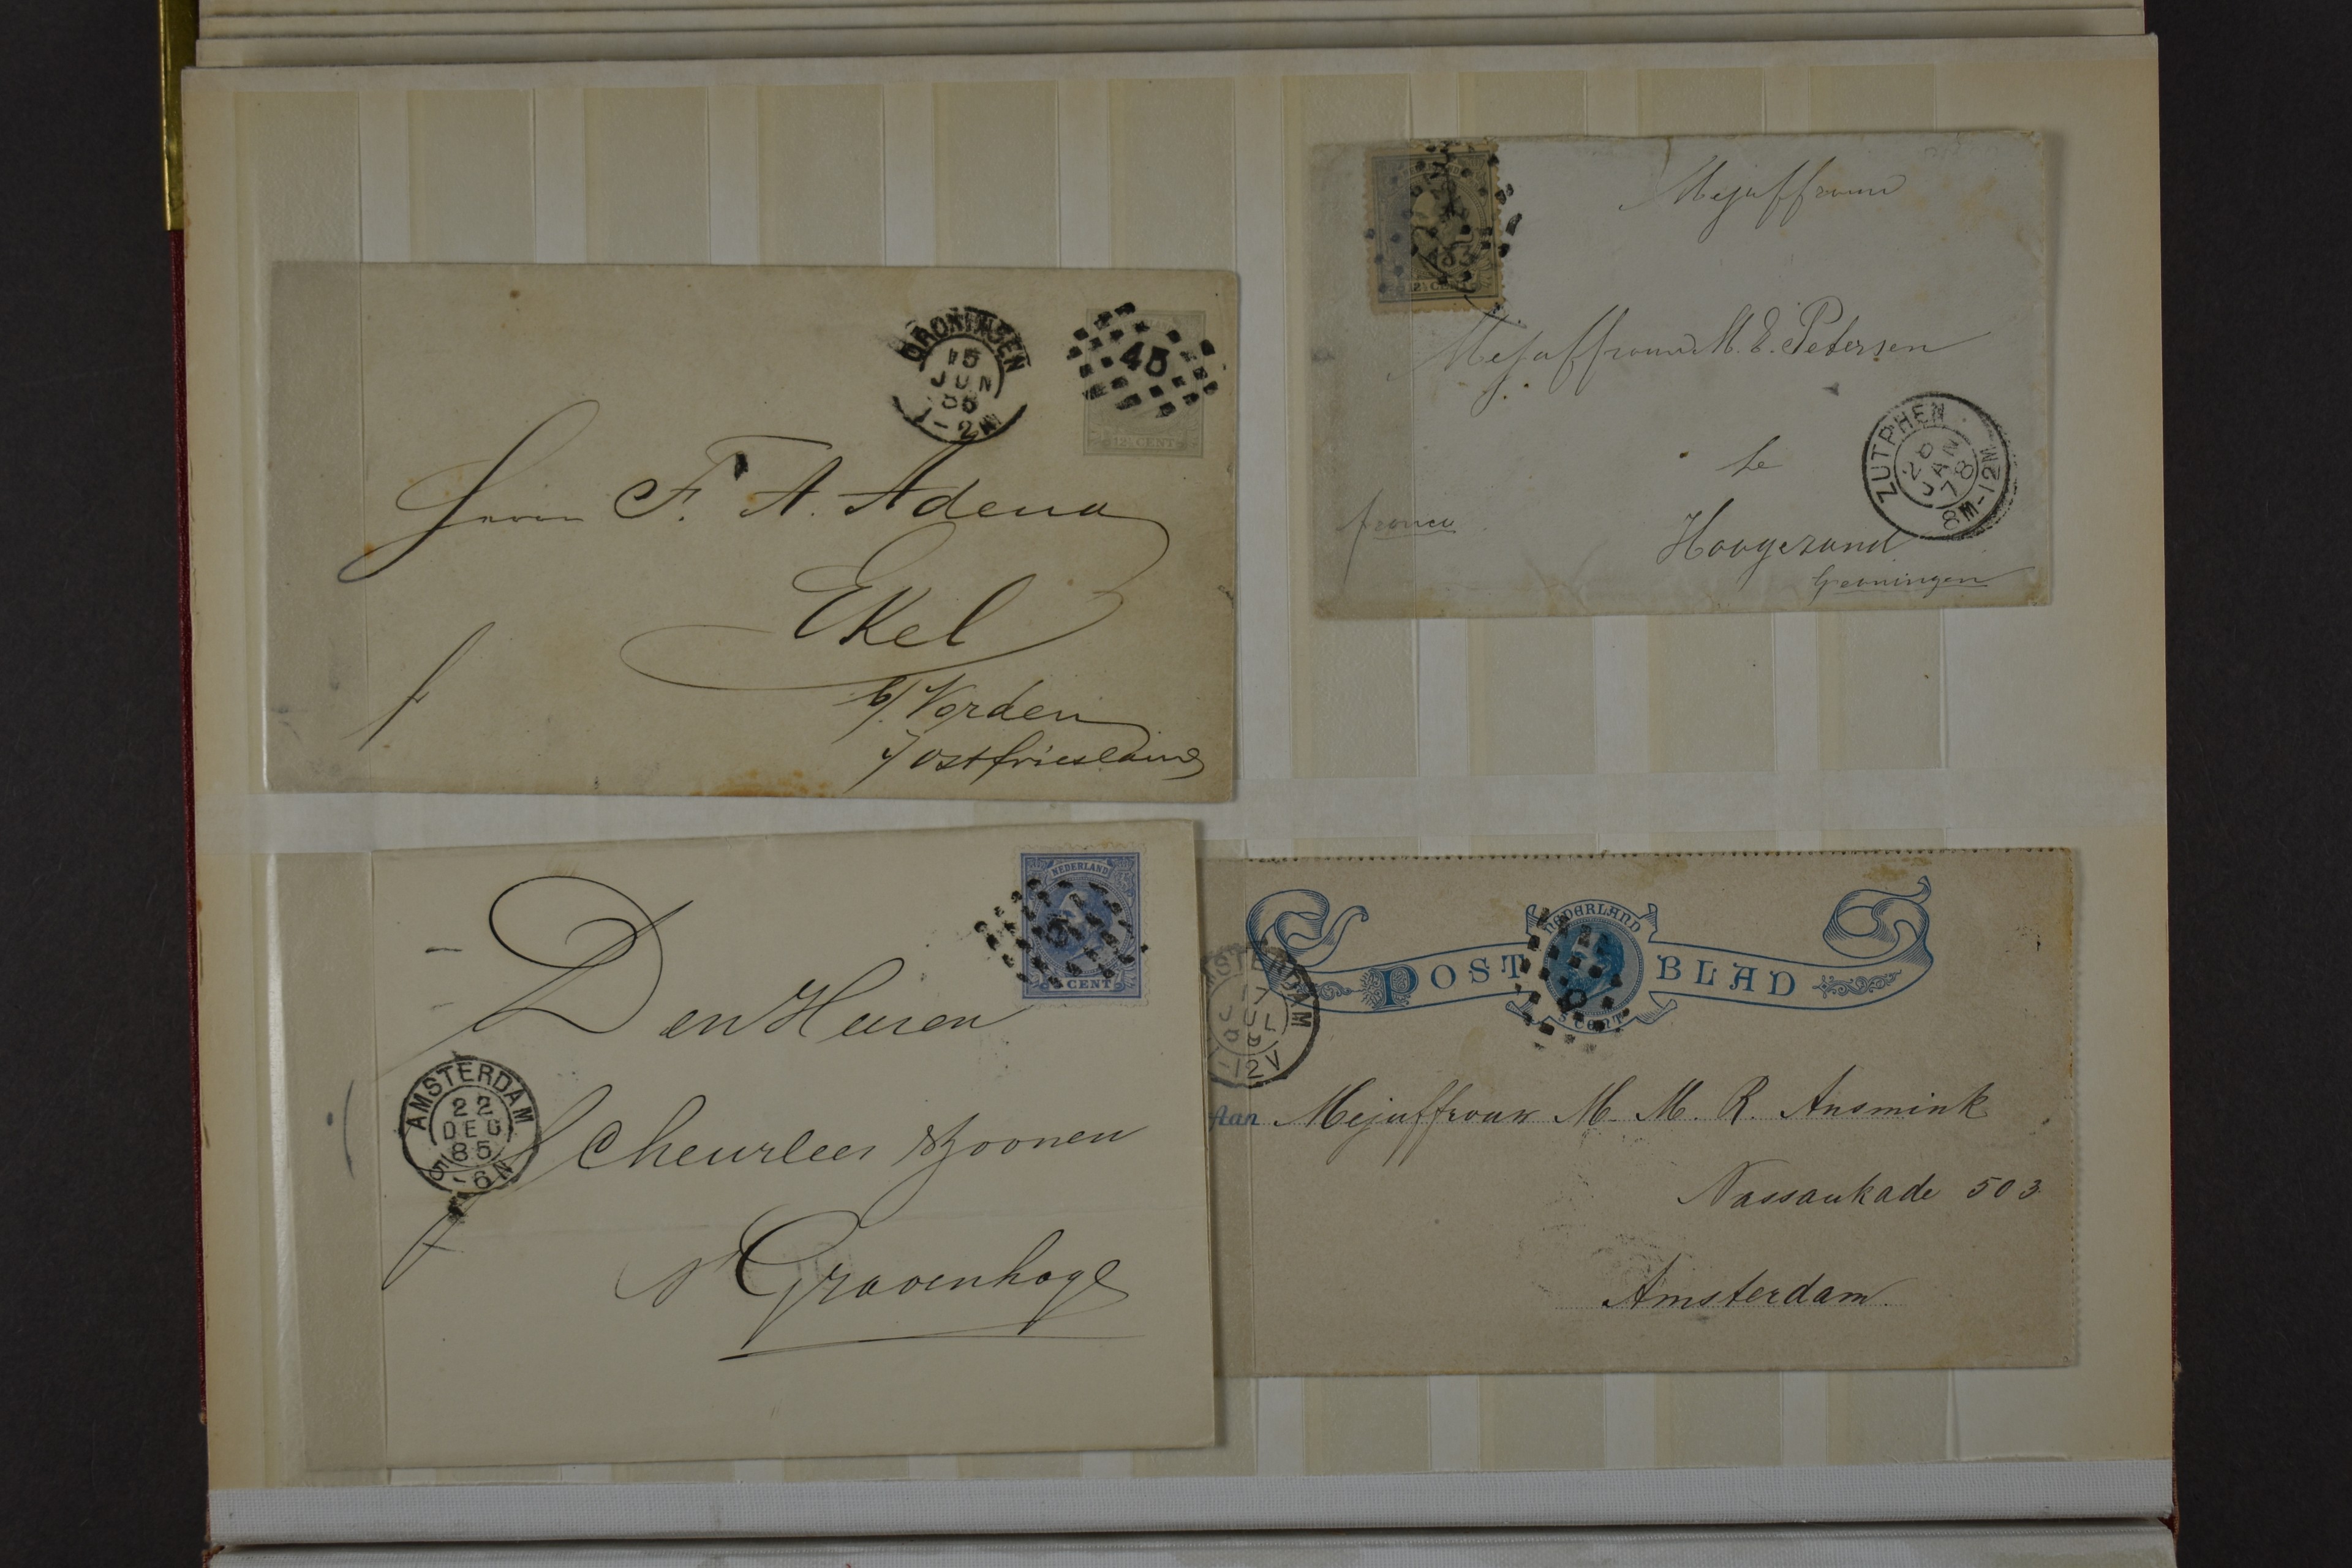 GRONINGEN
15
JUN
1-2N
45
12½ CENT
Herrn F. A. Adena
Ekel
b/ Norden
i/ Ostfriesland
f
12½ CENT
Mejuffrouw
Mejuffrouw M. E. Petersen
te
Hoogezand
Groningen
franco
ZUTPHEN
26
JAN
78
8M-12M
NEDERLAND
CENT
Den Heeren
Scheurleer & Zoonen
's Gravenhage
f
AMSTERDAM
22
DEC
85
5-6N
POST BLAD
NEDERLAND
5 CENT
AMSTERDAM
17
JUL
-12V
Aan Mejuffrouw M. M. R. Ansmink
Nassaukade 503.
Amsterdam.